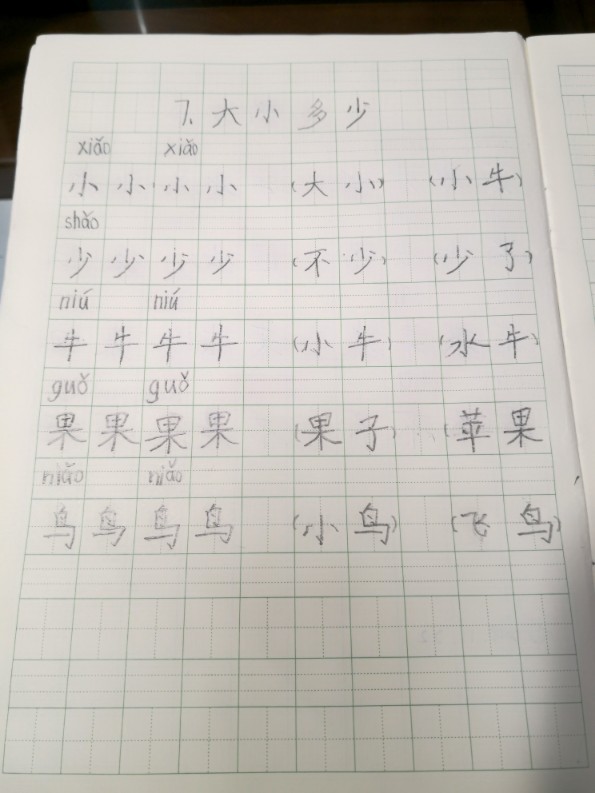 7. 大小多少
xiǎo xiǎo
小 小 小 小 (大小) (小牛)
shǎo
少 少 少 少 (不少) (少了)
niú niú
牛 牛 牛 牛 (小牛) (水牛)
guǒ guǒ
果 果 果 果 (果子) (苹果)
niǎo niǎo
鸟 鸟 鸟 鸟 (小鸟) (飞鸟)